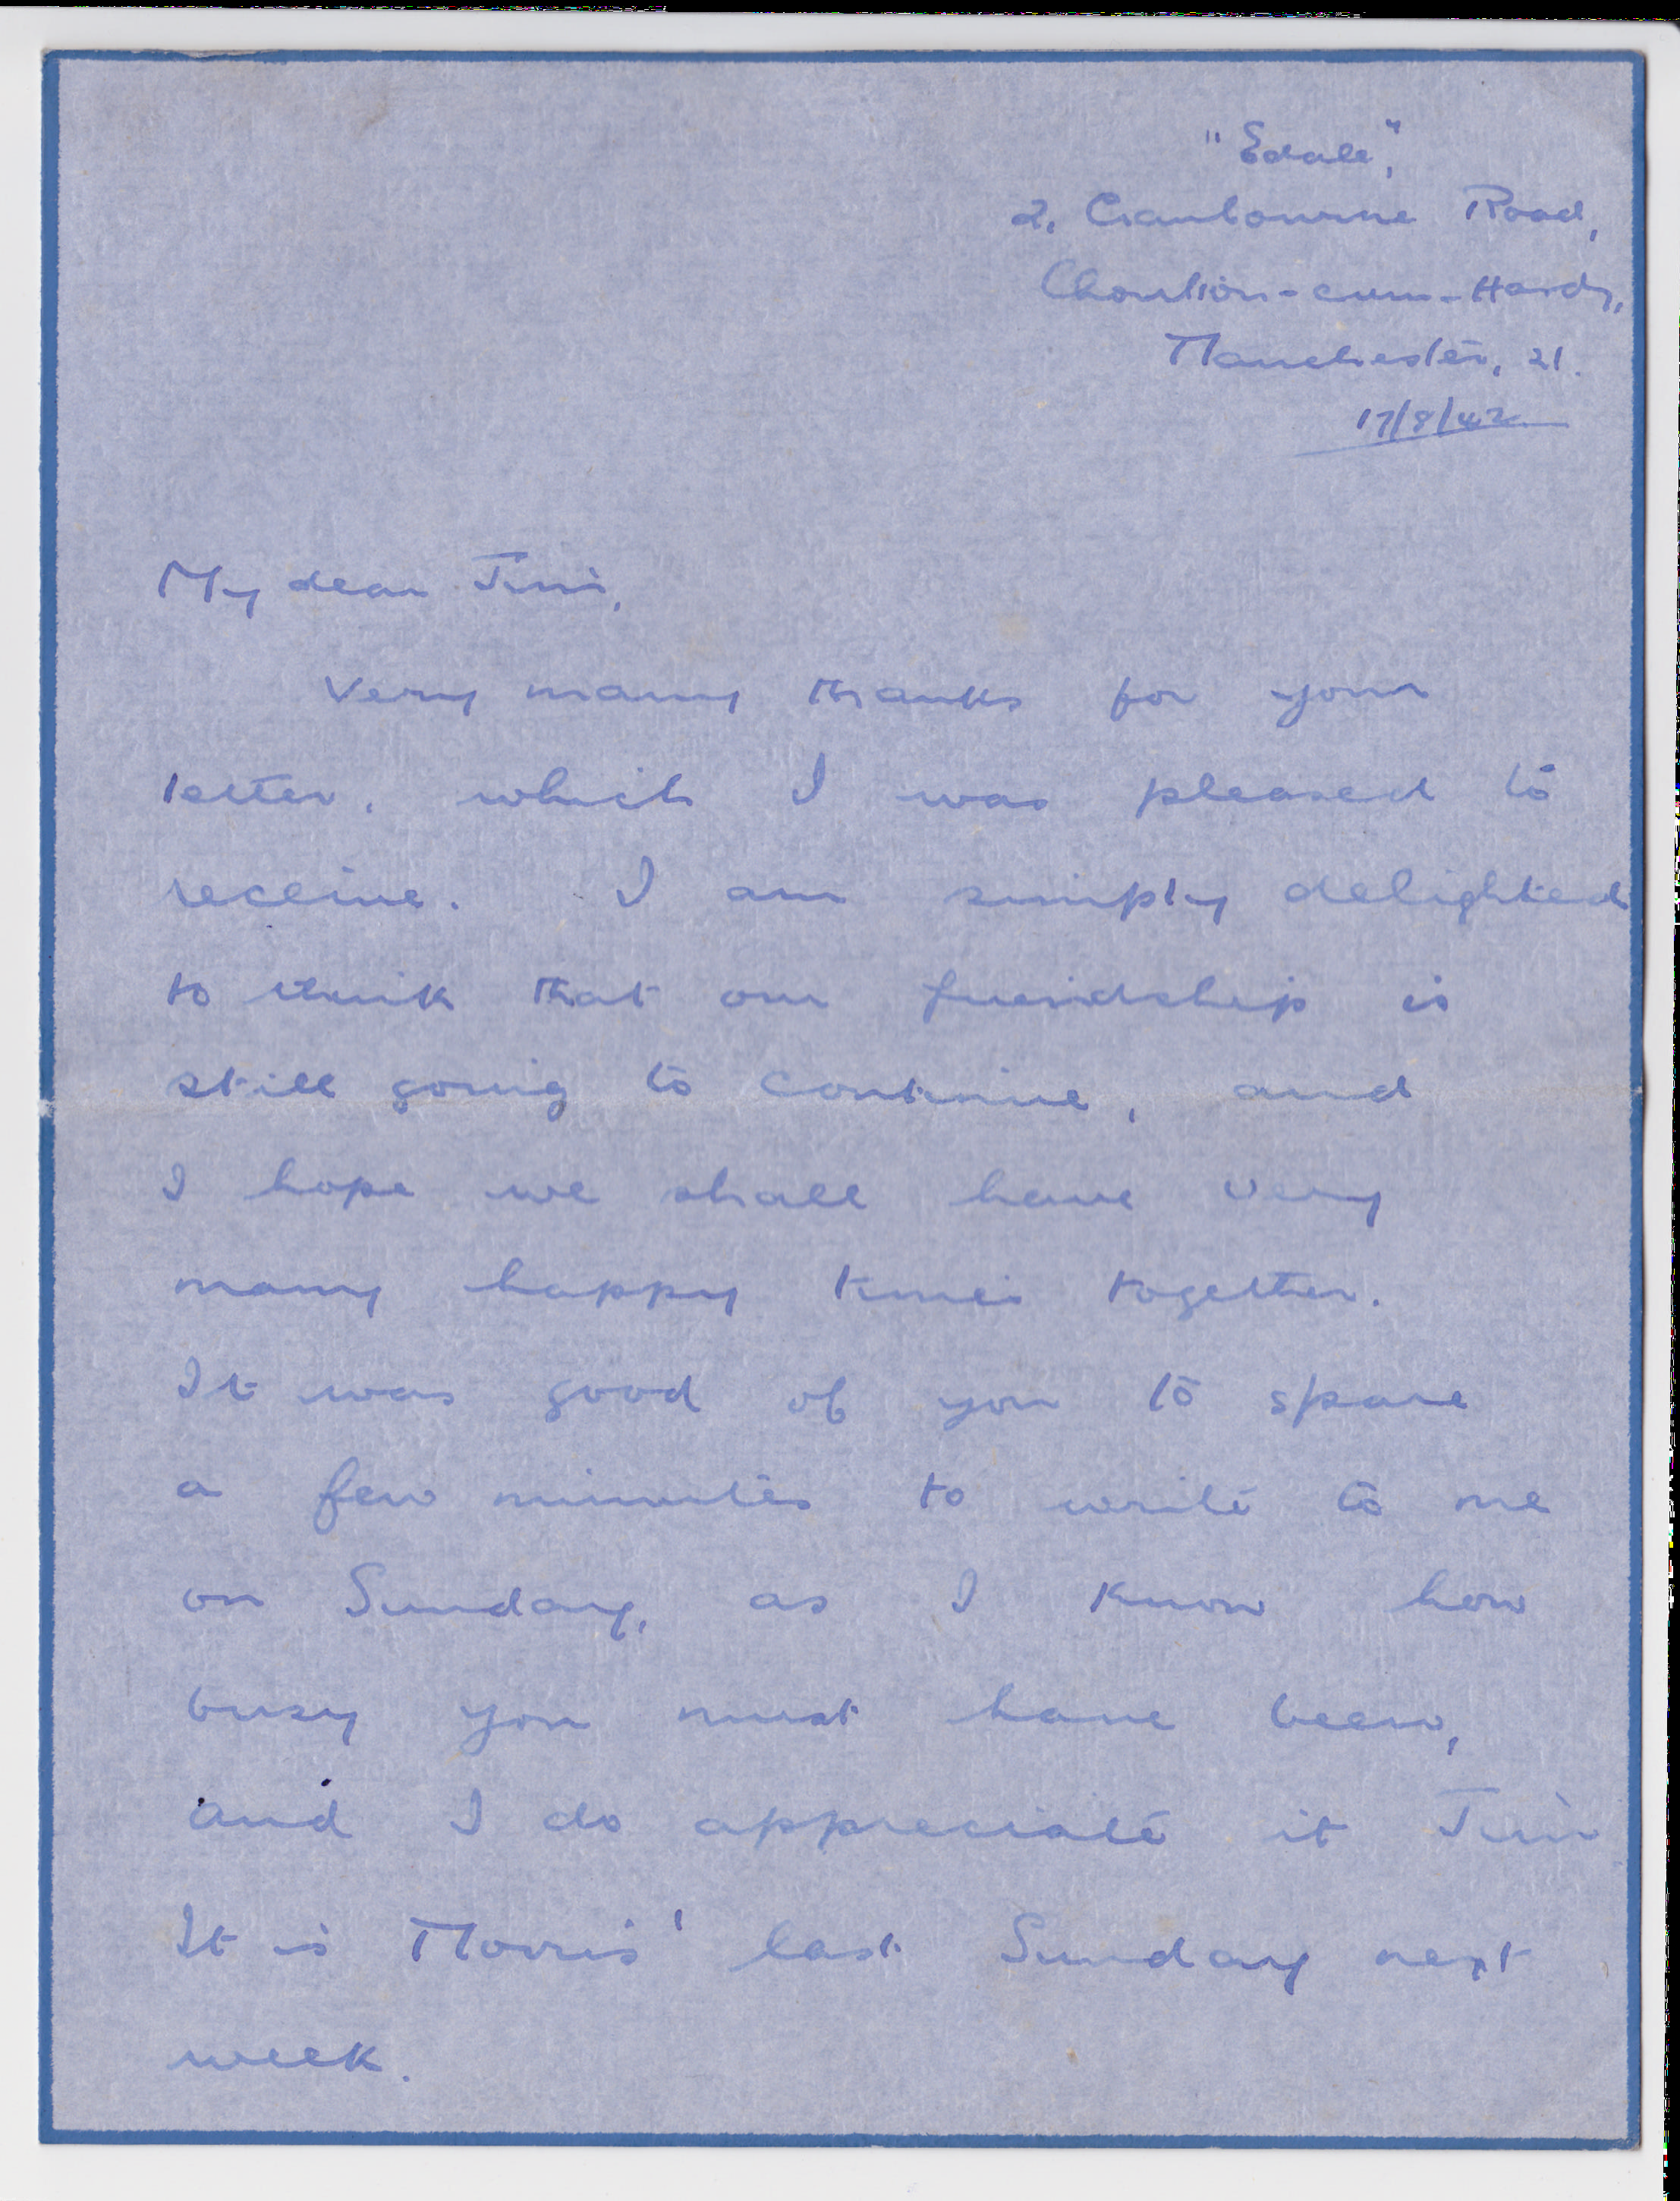 "Edale",
2, Cranbourne Road,
Chorlton-cum-Hardy,
Manchester, 21.
17/8/42
My dear Jim,
Very many thanks for your
letter, which I was pleased to
receive. I am simply delighted
to think that our friendship is
still going to continue, and
I hope we shall have very
many happy times together.
It was good of you to spare
a few minutes to write to me
on Sunday, as I know how
busy you must have been,
and I do appreciate it Jim
It is Morris' last Sunday next
week.